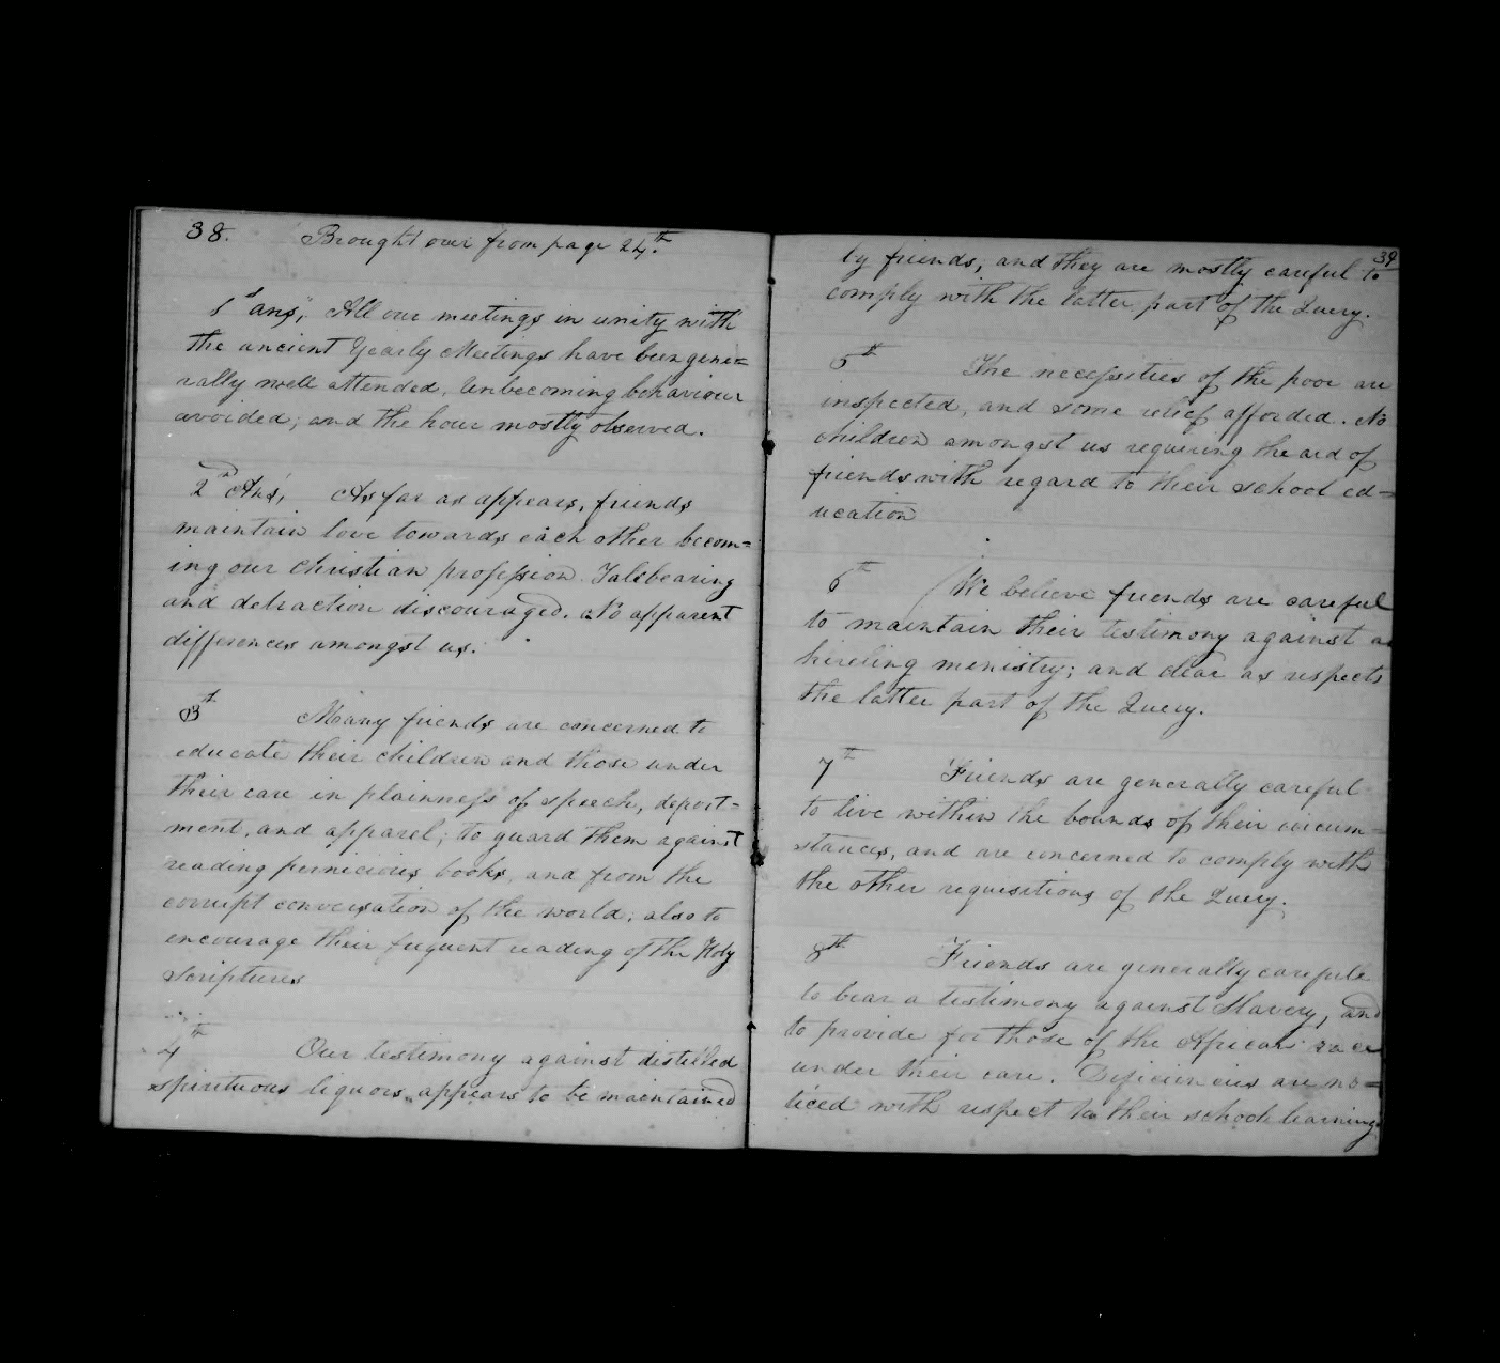 38.
Brought over from page 24th.
1st ans; All our meetings in unity with
the ancient Yearly Meetings have been gene=
rally well attended. Unbecoming behaviour
avoided; and the hour mostly observed.
2d Ans; As far as appears, friends
maintain love towards each other becom=
ing our christian profession. Talebearing
and detraction discouraged. No apparent
differences amongst us.
3th Many friends are concerned to
educate their children and those under
their care in plainness of speech, deport=
ment, and apparel; to guard them against
reading pernicious books, and from the
corrupt conversation of the world; also to
encourage their frequent reading of the Holy
scriptures
4th Our testimony against distilled
spirituous liquors, appears to be maintained
39
by friends; and they are mostly careful to
comply with the latter part of the Query.
5th The necessities of the poor are
inspected, and some relief afforded. No
children amongst us requiring the aid of
friends with regard to their school ed=
ucation
6th We believe friends are careful
to maintain their testimony against a
hireling ministry; and clear as respects
the latter part of the Query.
7th Friends are generally careful
to live within the bounds of their circum=
stances, and are concerned to comply with
the other requisitions of the Query.
8th Friends are generally carefull
to bear a testimony against Slavery, and
to provide for those of the African race
under their care. Deficiencies are no=
ticed with respect to their school learning